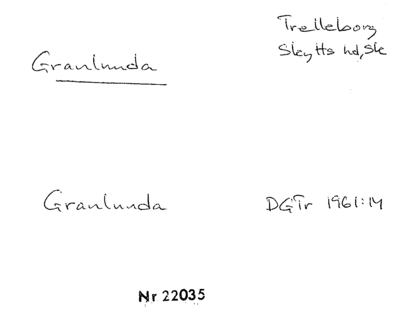 Granlunda
Trelleborg
Skytts hd, Sk
Granlunda
DGTr 1961:14
Nr 22035